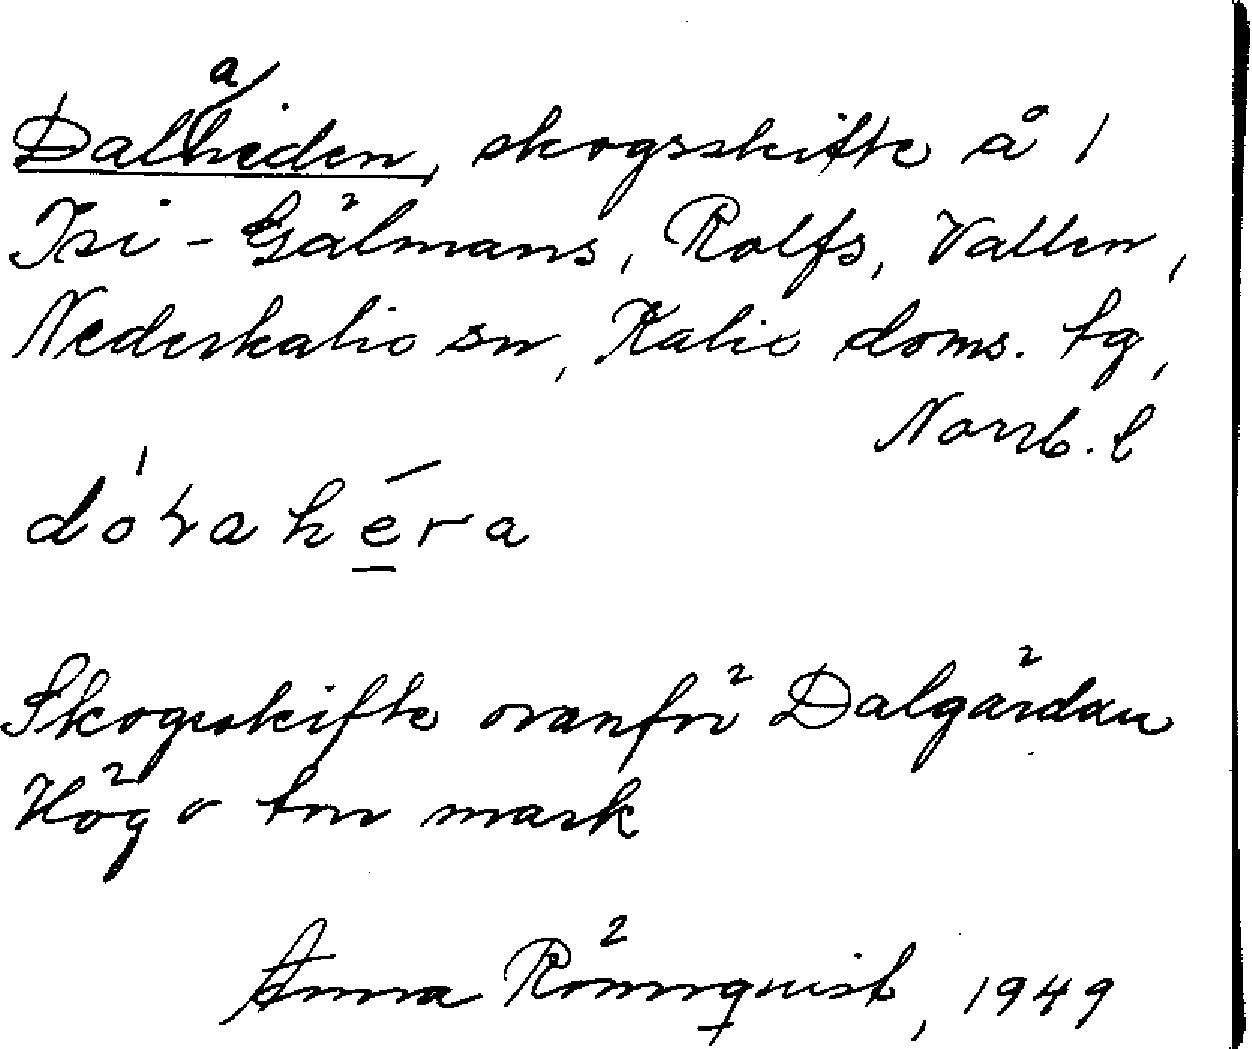 a
Dalheden, skogsskifte å 1
Isi-Gälmans, Rolfs, Vallen,
Nederkalix sn, Kalix doms. tg,
Norrb. l
Skogsskifte ovanför Dalgärdan
Hög o torr mark
Anna Rönnquist, 1949